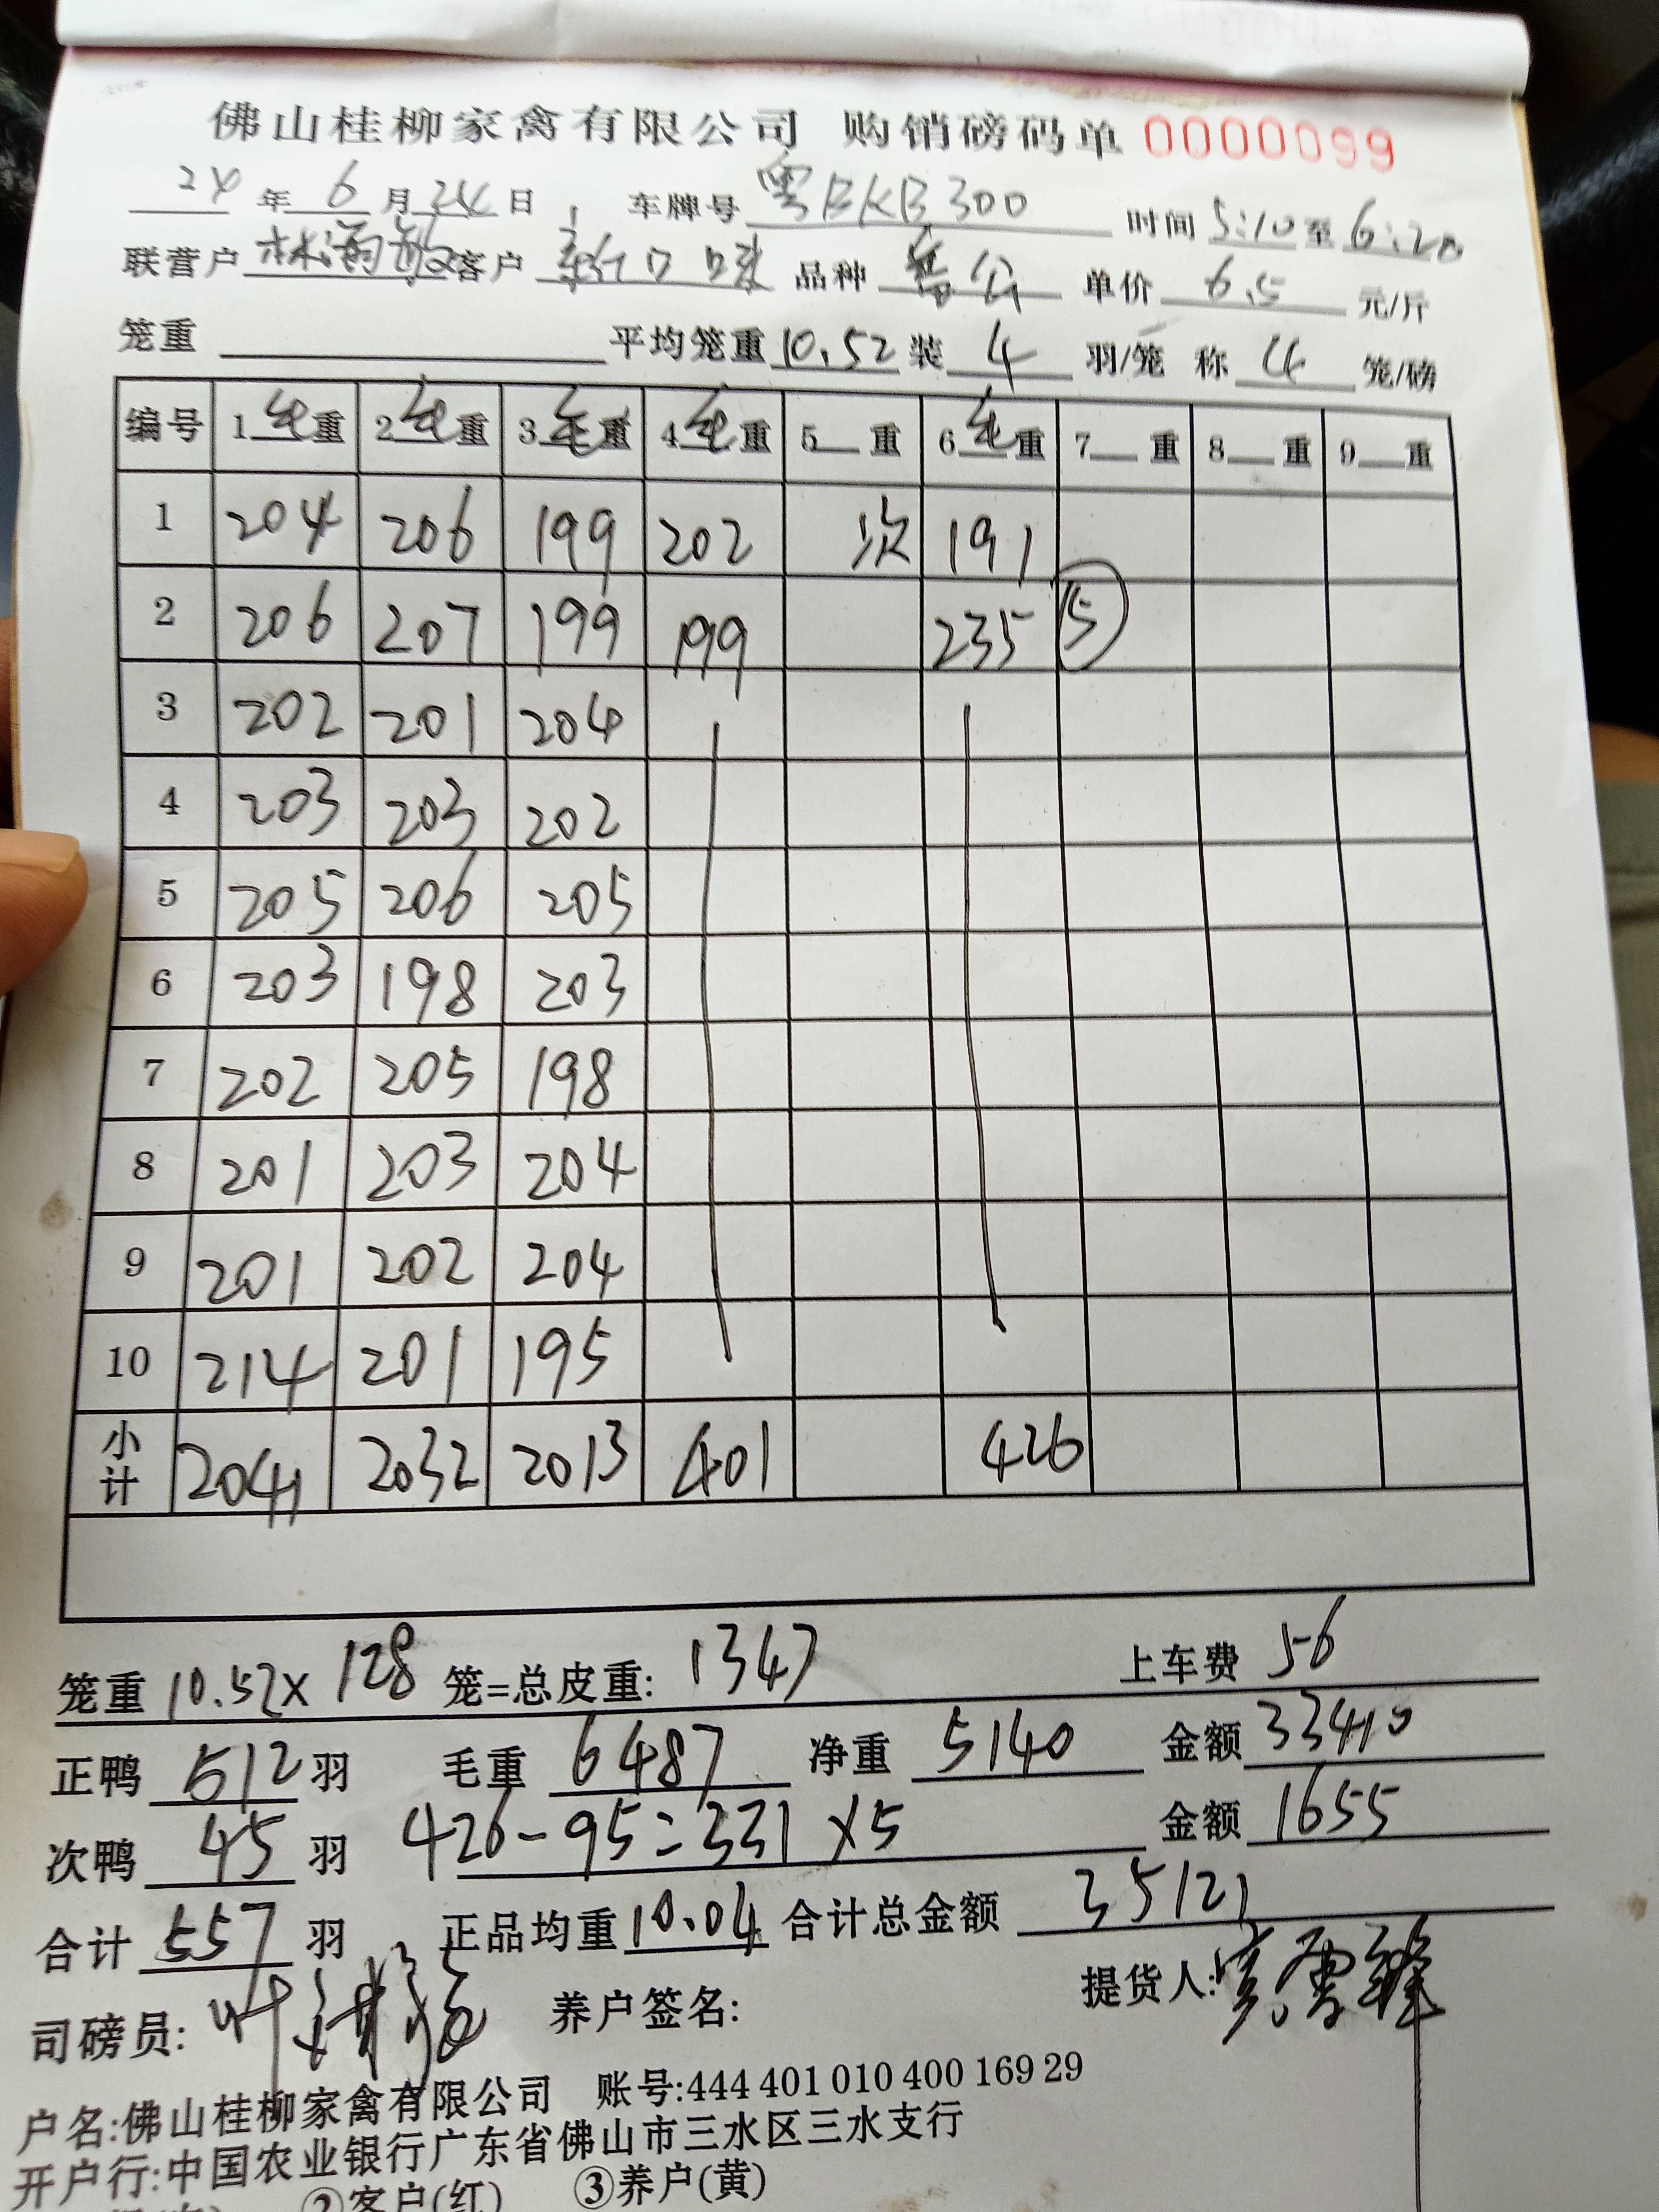 佛山桂柳家禽有限公司 购销磅码单 0000099
24 年 6 月 24 日 车牌号 粤EKB300 时间 5:10 至 6:20
联营户 林海敏 客户 新口味 品种 番公 单价 6.5 元/斤
笼重 平均笼重 10.52 装 4 羽/笼 称 4 笼/磅
编号 1 毛重 2 毛重 3 毛重 4 毛重 5 重 6 毛重 7 重 8 重 9 重
1 204 206 199 202 次 191
2 206 207 199 199 235 5
3 202 201 204
4 203 203 202
5 205 206 205
6 203 198 203
7 202 205 198
8 201 203 204
9 201 202 204
10 214 201 195
小计 2041 2032 2013 401 426
笼重 10.52 x 128 笼=总皮重: 1347 上车费 56
正鸭 512 羽 毛重 6487 净重 5140 金额 33410
次鸭 45 羽 426-95=331 x5 金额 1655
合计 557 羽 正品均重 10.04 合计总金额 35121
司磅员: 养户签名: 提货人:
户名:佛山桂柳家禽有限公司 账号:444 401 010 400 169 29
开户行:中国农业银行广东省佛山市三水区三水支行
②客户(红) ③养户(黄)